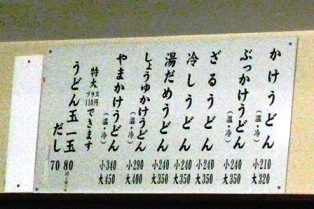 かけうどん（温・冷） 小210 大320
ぶっかけうどん（温・冷） 小240 大350
ざるうどん 小240 大350
冷しうどん 小240 大350
湯だめうどん 小240 大350
しょうゆかけうどん（温・冷） 小290 大400
やまかけうどん（温・冷） 小340 大450
特大プラス110円できます
うどん玉一玉 80
だし 70